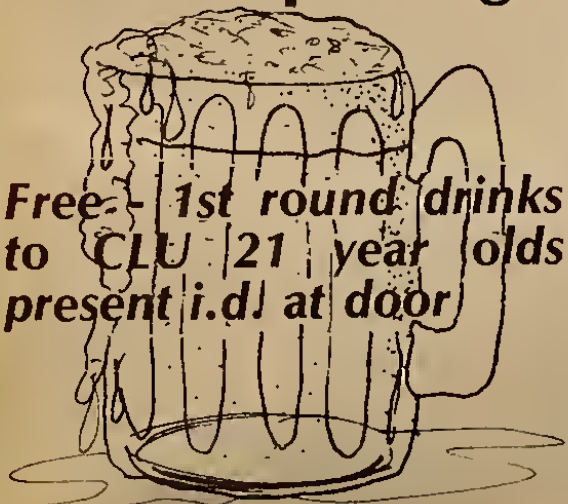 Free - 1st round drinks
to CLU 21 year olds
present i.d. at door